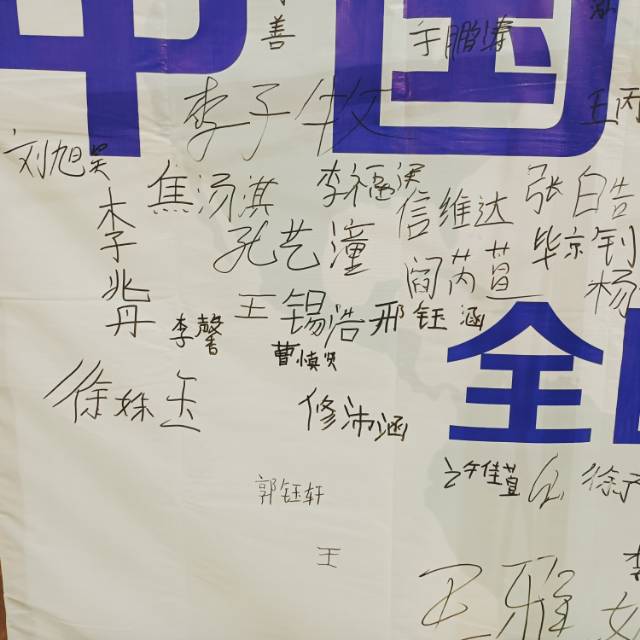 中国
善
于鹏涛
李子牧
王丙
刘旭昊
焦汤淇
李福洪
信维达
张皓
李兆丹
孔艺潼
阎芮萱
毕京钊
杨
王锡浩
邢钰涵
李馨
曹慎贤
全
徐姝玉
修沛涵
许佳萱
徐
郭钰轩
王
李
王雅